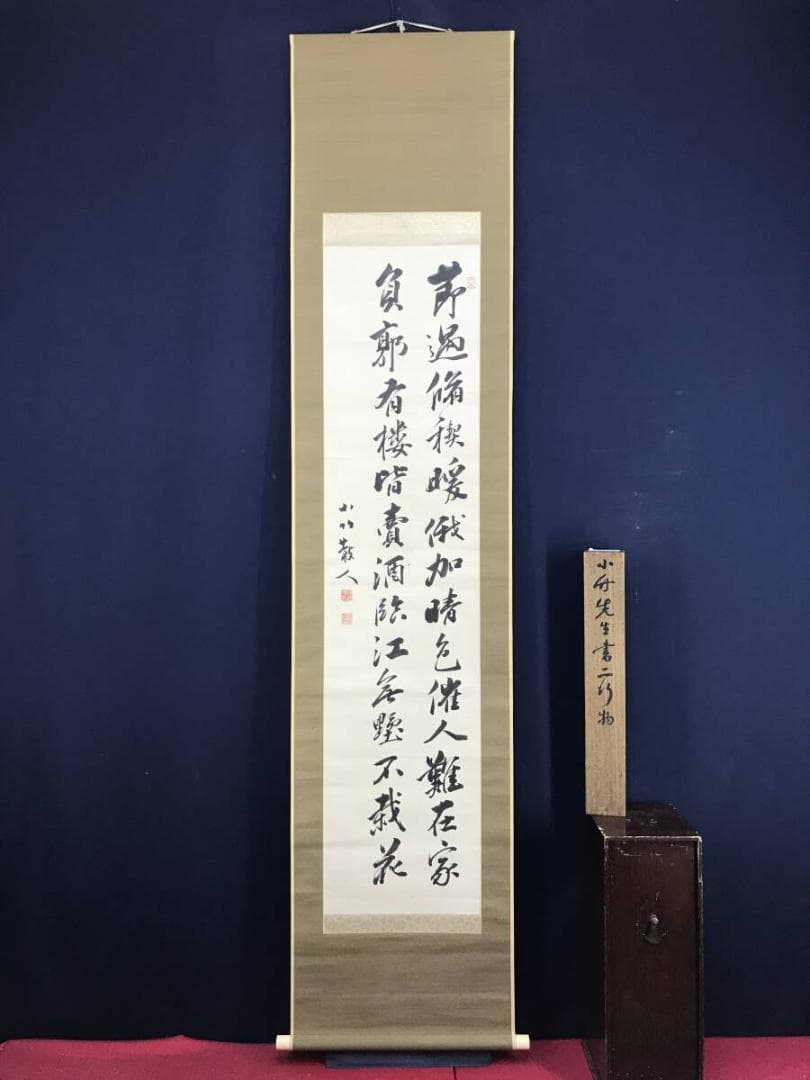 節過脩禊暖俄加晴色催人難在家
負郭有楼皆賣酒臨江無墅不栽花
小竹散人
小竹先生書二行物